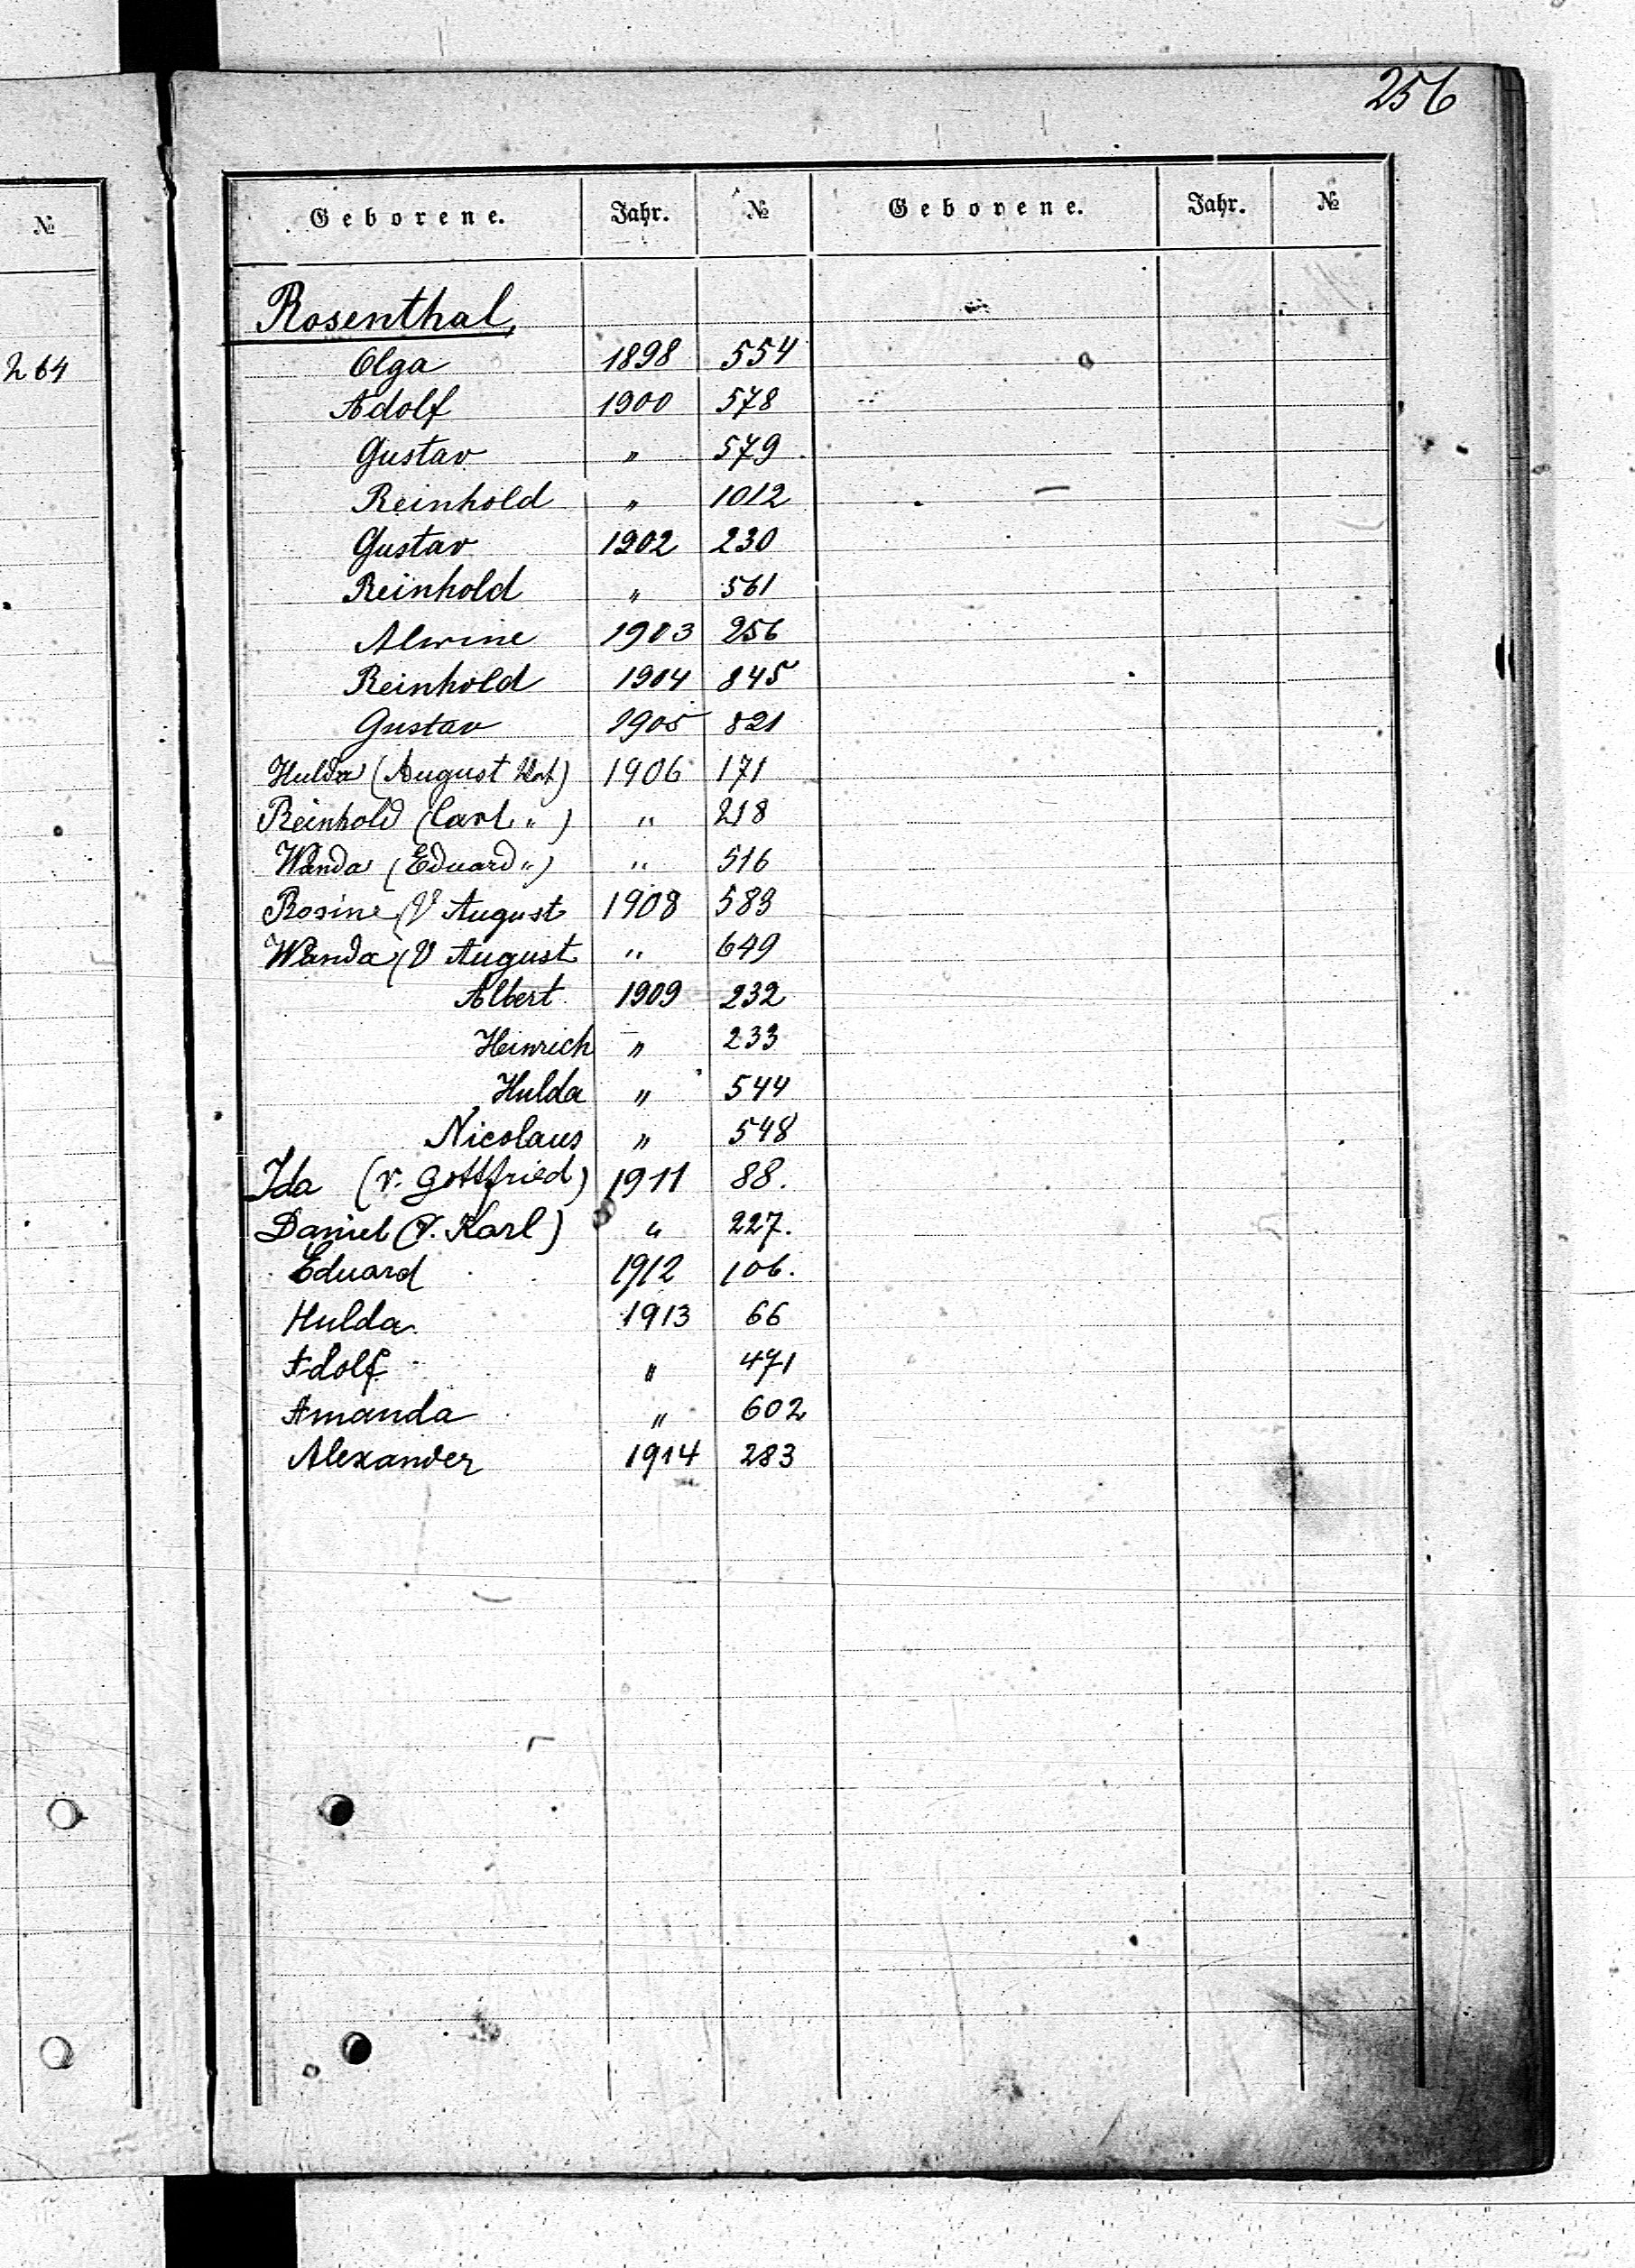 256
№
264
Geborene. Jahr. № Geborene. Jahr. №
Rosenthal,
Olga 1898 554
Adolf 1900 578
Gustav " 579
Reinhold " 1012
Gustav 1902 230
Reinhold " 561
Alwine 1903 256
Reinhold 1904 845
Gustav 1905 821
Hulda (August Vat) 1906 171
Reinhold (Carl " ) " 218
Wanda (Eduard ") " 516
Rosine (V August 1908 583
Wanda (V August " 649
Albert 1909 232
Heinrich " 233
Hulda " 544
Nicolaus " 548
Ida (v. Gottfried) 1911 88.
Daniel (V. Karl) " 227.
Eduard 1912 106.
Hulda 1913 66
Adolf " 471
Amanda " 602
Alexander 1914 283